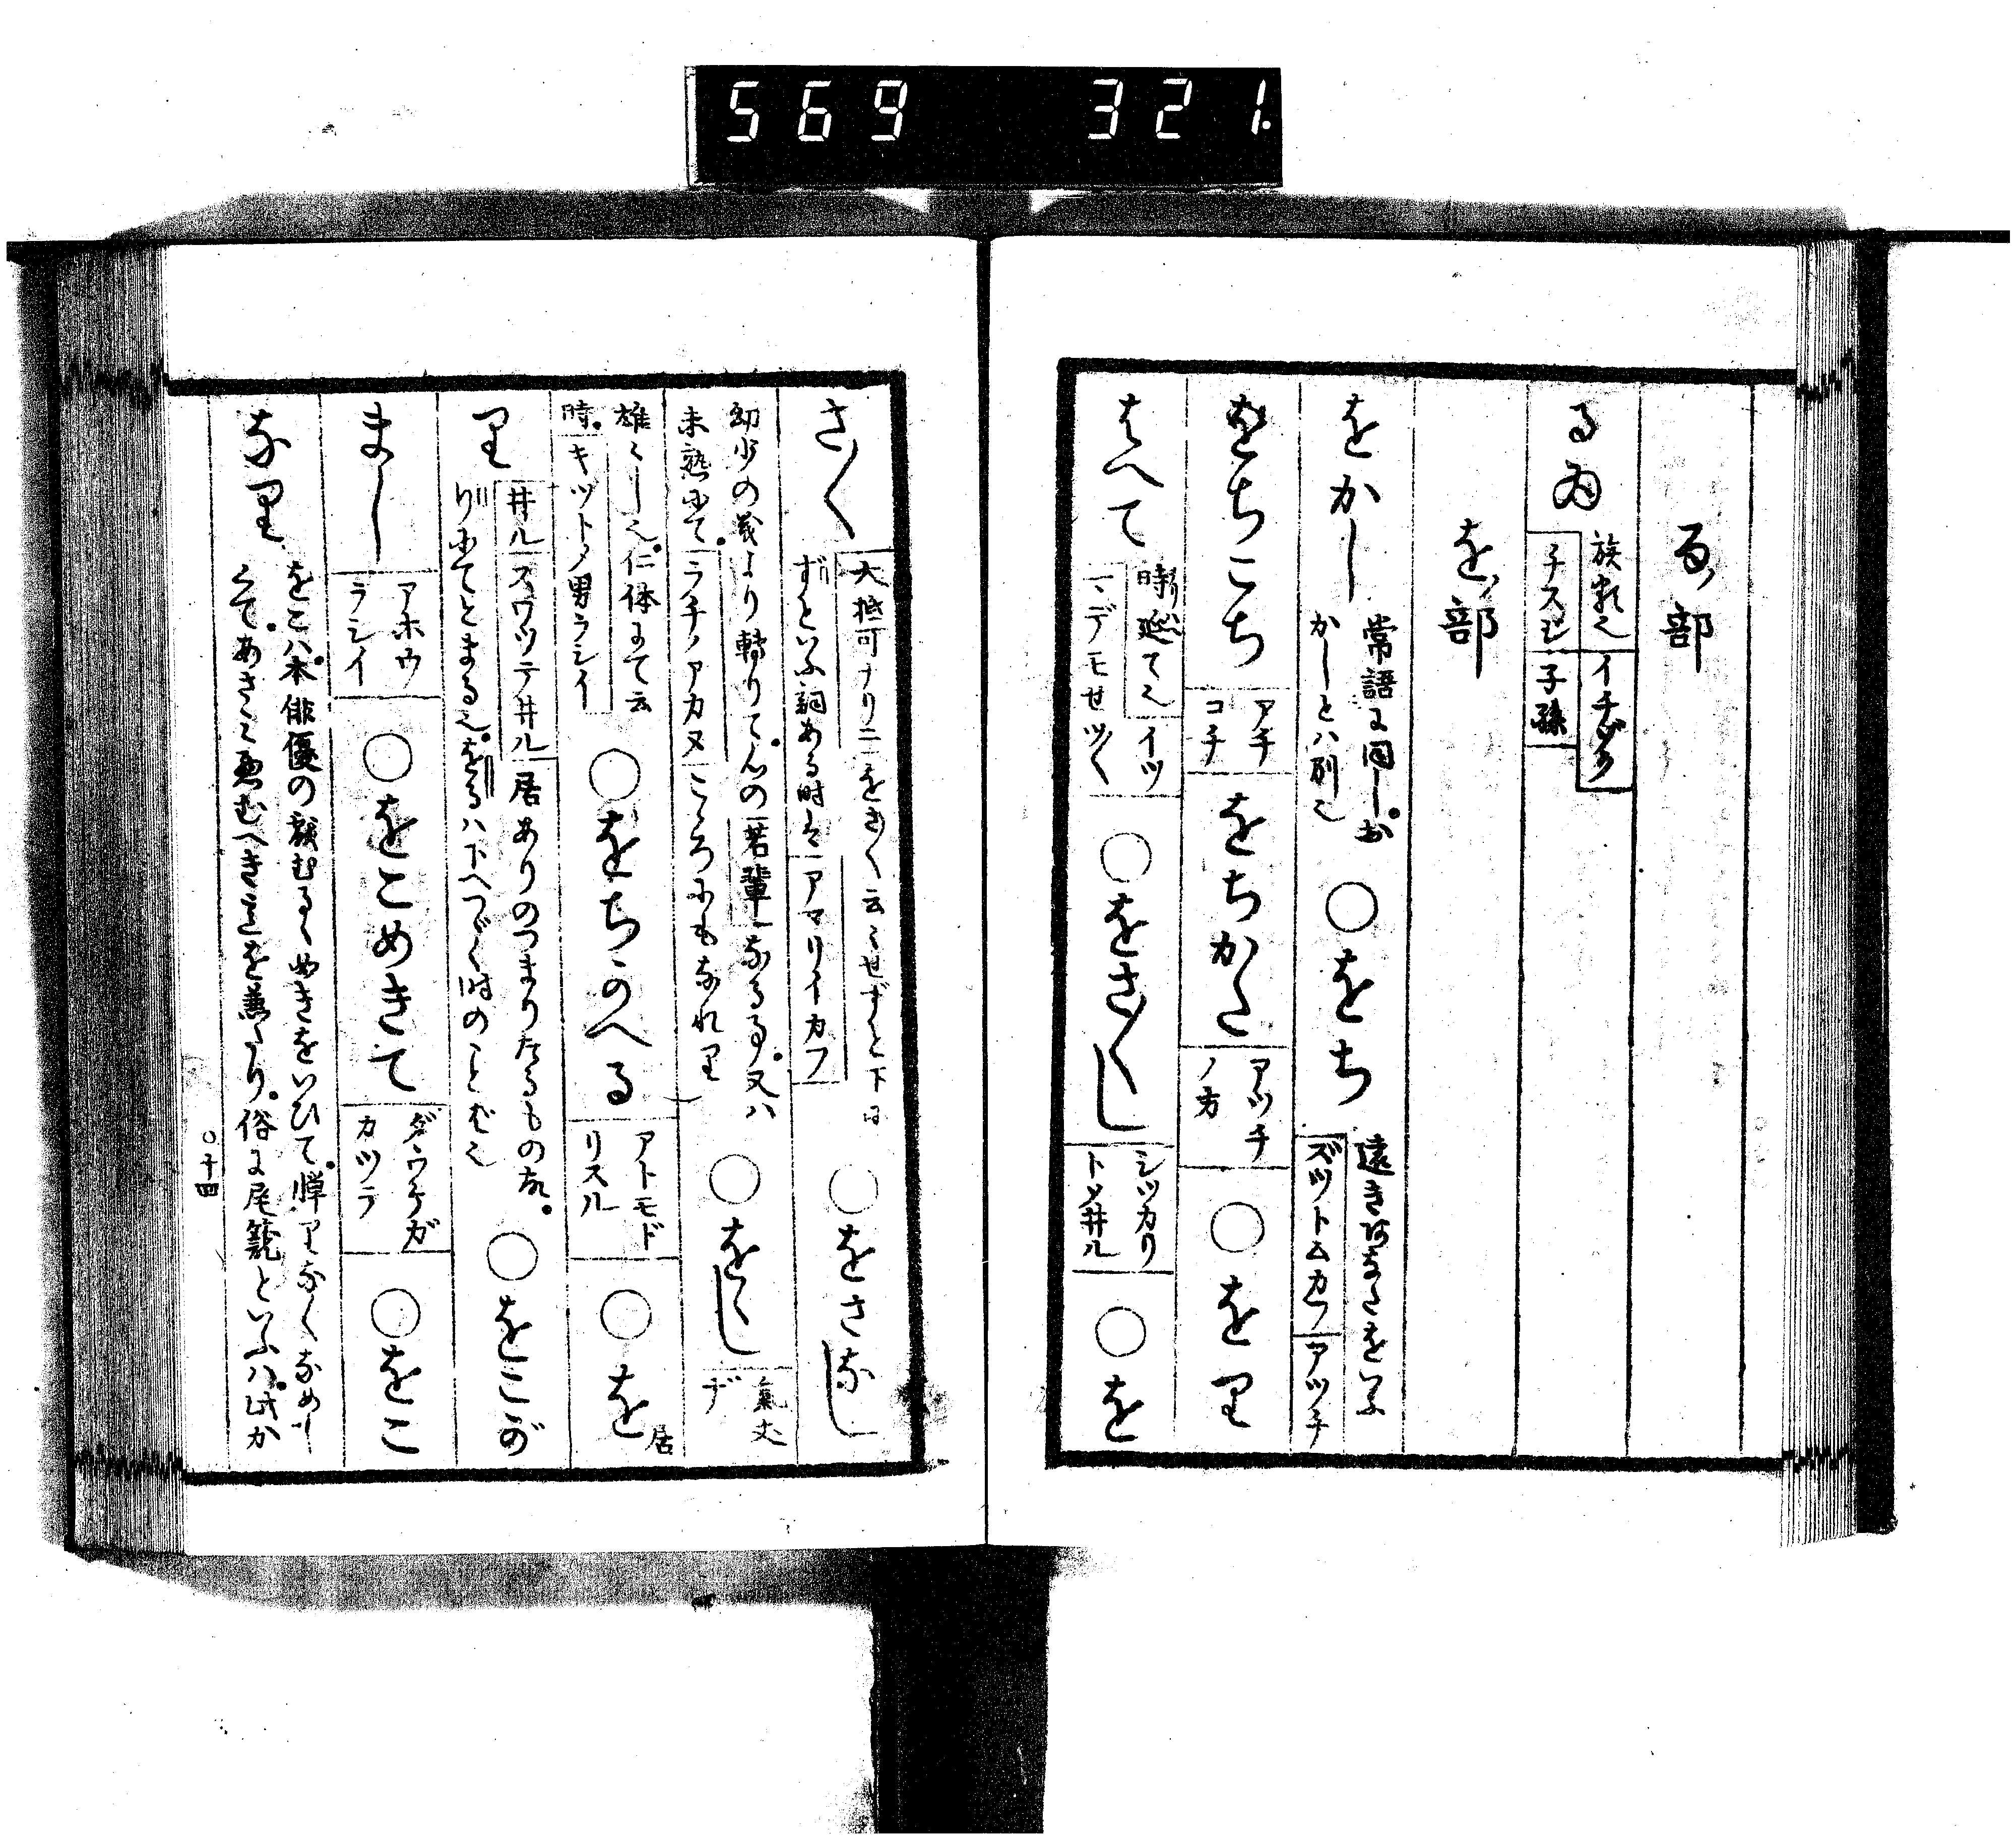 569 321.
る部
るゐ 族類也 イチモン チスヂ 子孫
を部
をかし 常語に同しおかしとハ別也 ○をち 遠きあなたをいふ ズツトムカフ アツチ
をちこち アチコチ をちかた アツチノ方 ○をり
はへて 時延てえ イツマデモせツく ○をさ〳〵し シツカリトメ井ル ○を
さ〳〵 大抵可ナリニ をさ〳〵云々せずと下にずといふ詞ある時は アマリイカフ ○をさなし
幼少の義より轉りて心の若輩なる又ハ未熟にて ラチノアカヌ こゝろにもなれり ○をゝし 氣丈ナ
雄々しえ仁体にて云時 キツトメ男ラシイ ○をちかへる アトモドリスル ○を居
り 井ル スワツテ井ル 居ありのつまりたるもの故りにてとまる也をるハ下へつゞく時のことば也 ○をこが
まし アホウラシイ ○をこめきて ダウケガカツテ ○をこ
なり をこハ本俳優の戯むるゝめきをいひて憚りなくなめしくてあさましき意を兼たり俗に尾籠といふハ此か
○十四